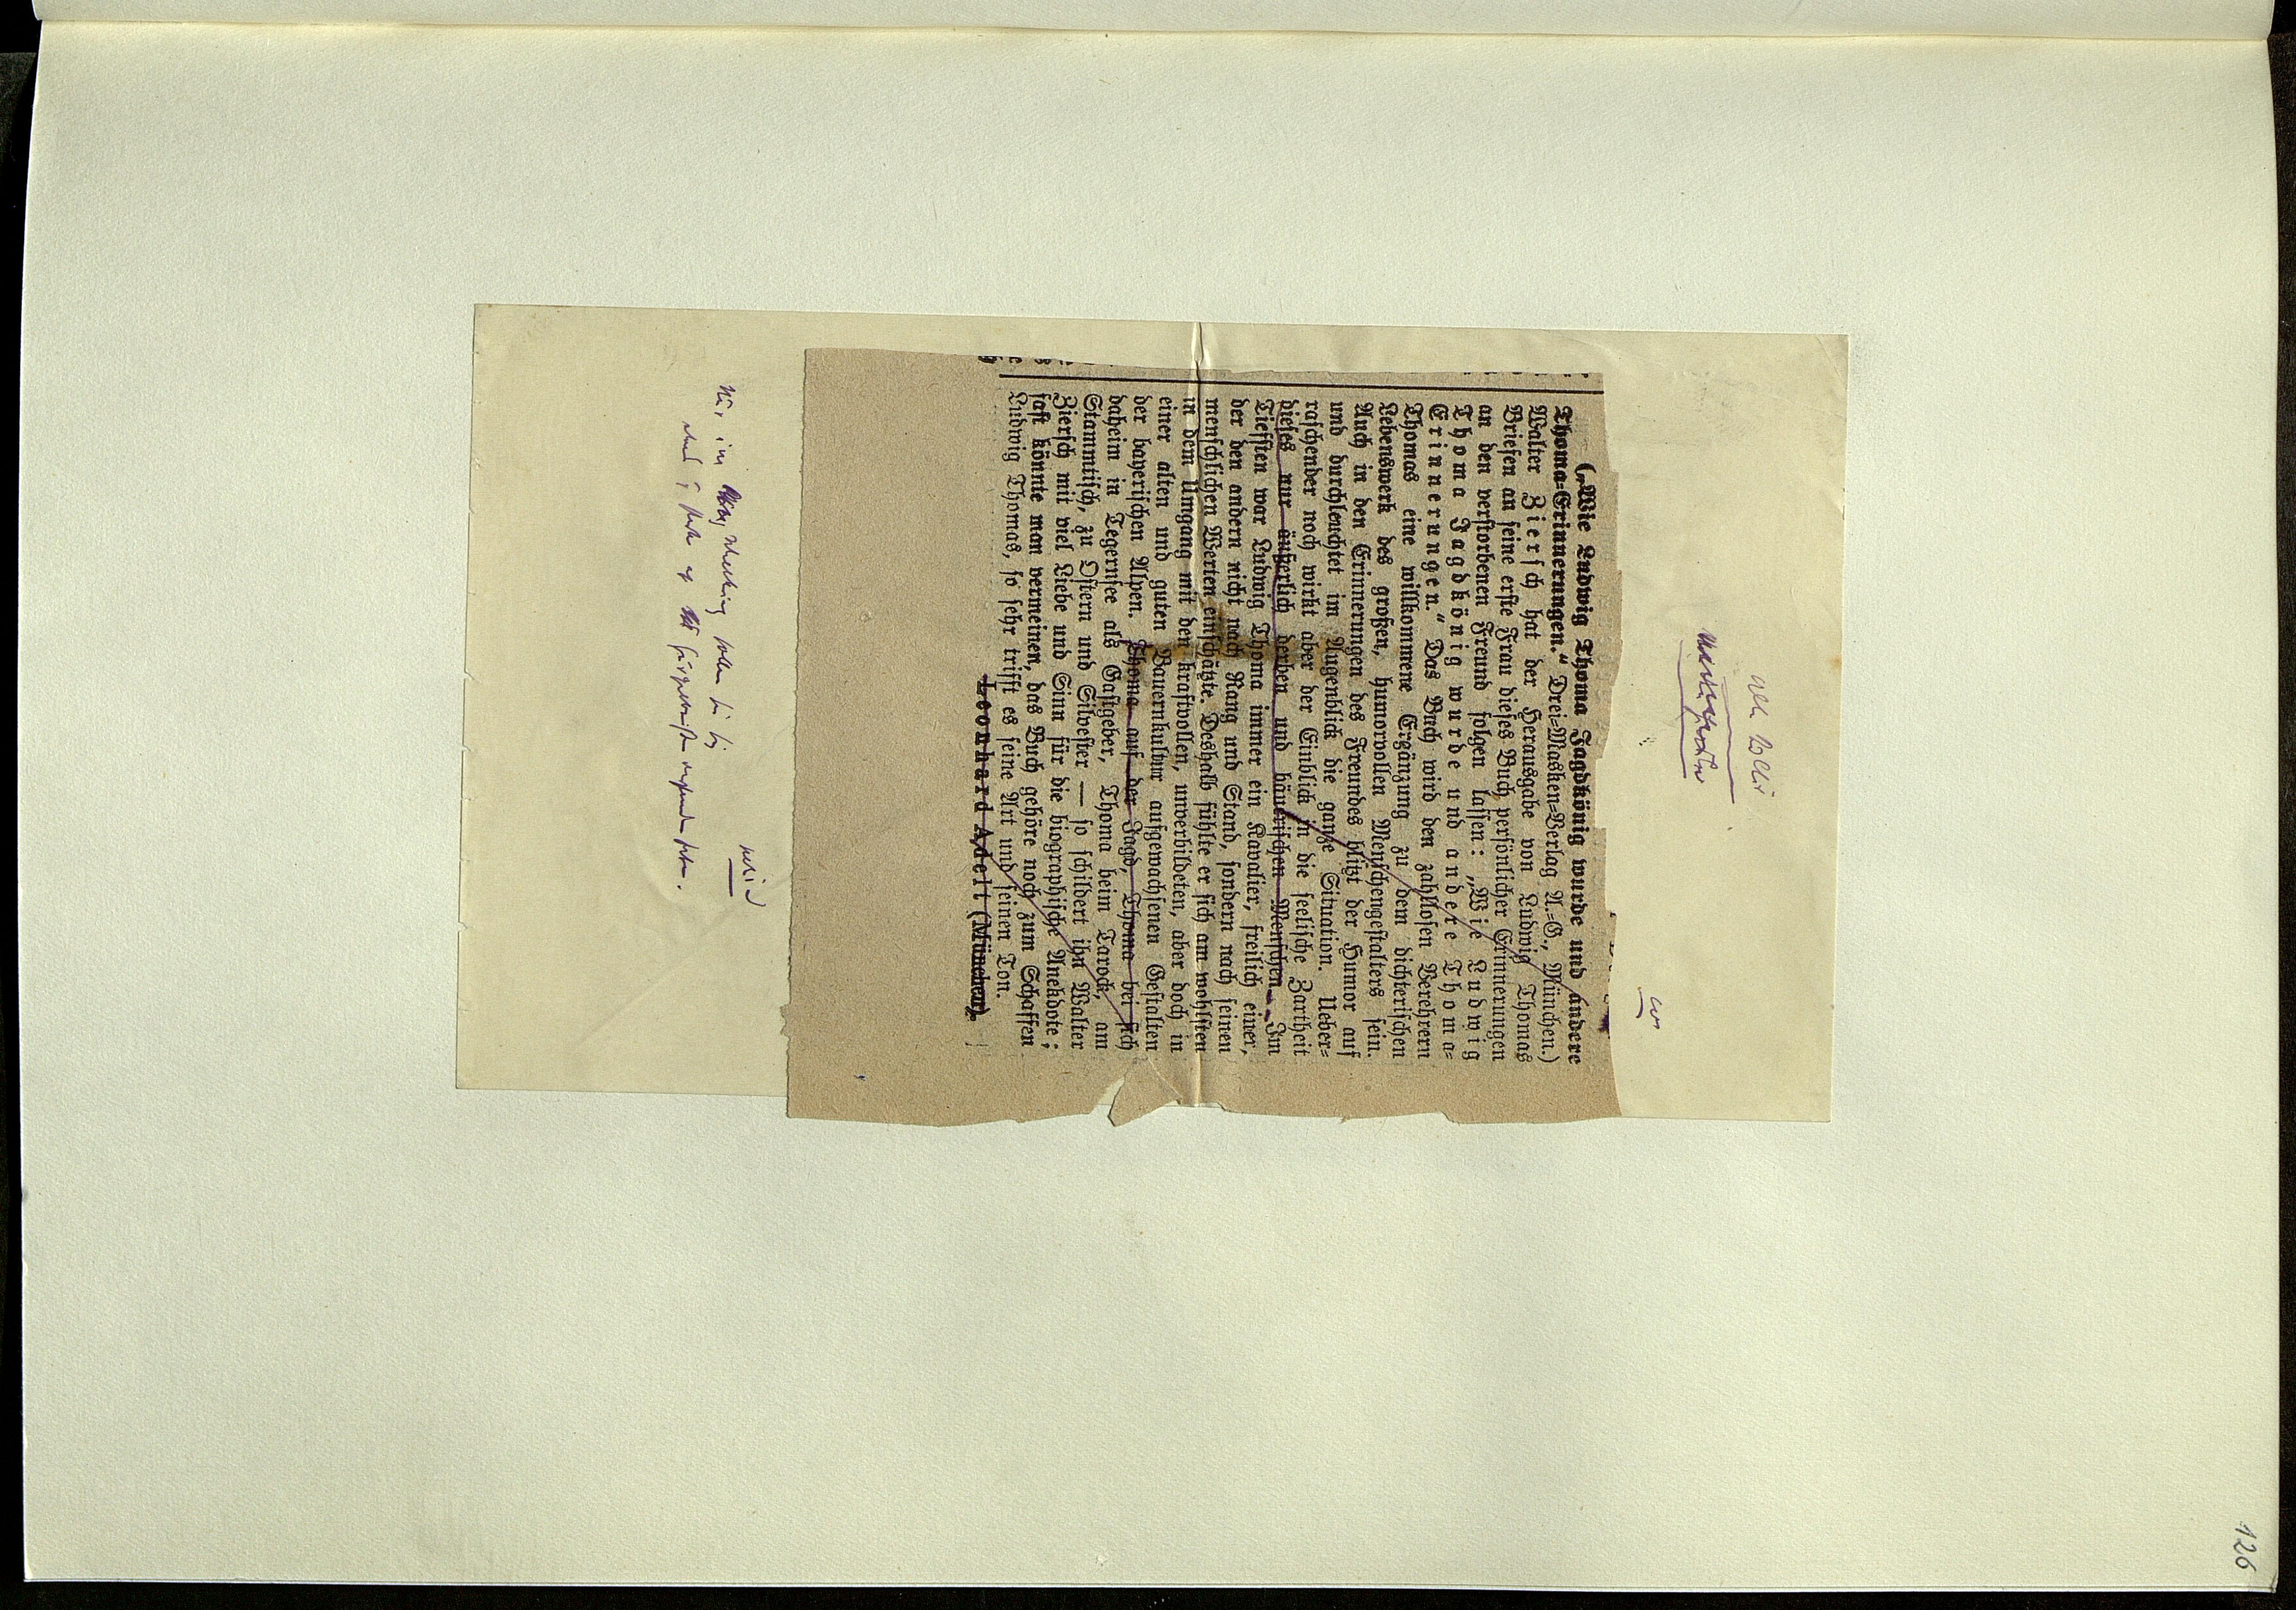 126
(„Wie Ludwig Thoma Jagdkönig wurde und andere
Thoma-Erinnerungen.“ Drei-Masken-Verlag A.-G., München.)
Walter Ziersch hat der Herausgabe von Ludwig Thomas
Briefen an seine erste Frau dieses Buch persönlicher Erinnerungen
an den verstorbenen Freund folgen lassen: „Wie Ludwig
Thoma Jagdkönig wurde und andere Thoma-
Erinnerungen.“ Das Buch wird den zahllosen Verehrern
Thomas eine willkommene Ergänzung zu dem dichterischen
Lebenswerk des großen, humorvollen Menschengestalters sein.
Auch in den Erinnerungen des Freundes blitzt der Humor auf
und durchleuchtet im Augenblick die ganze Situation. Ueber-
raschender noch wirkt aber der Einblick in die seelische Zartheit
dieses nur äußerlich derben und bäuerischen Menschen. Im
Tiefsten war Ludwig Thoma immer ein Kavalier, freilich einer,
der den andern nicht nach Rang und Stand, sondern nach seinen
menschlichen Werten einschätzte. Deshalb fühlte er sich am wohlsten
in dem Umgang mit den kraftvollen, unverbildeten, aber doch in
einer alten und guten Bauernkultur aufgewachsenen Gestalten
der bayerischen Alpen. Thoma auf der Jagd, Thoma bei sich
daheim in Tegernsee als Gastgeber, Thoma beim Tarock, am
Stammtisch, zu Ostern und Silvester — so schildert ihn Walter
Ziersch mit viel Liebe und Sinn für die biographische Anekdote;
fast könnte man vermeinen, das Buch gehöre noch zum Schaffen
Ludwig Thomas, so sehr trifft es seine Art und seinen Ton.
Leonhard Adelt (München).